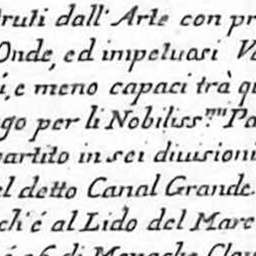 truti dall' Arte con pr
Onde, ed impetuosi V
i, e meno capaci trà qu
go per li Nobiliss.mi Pa
partito in sei diuisioni
el detto Canal Grande.
ch'é al Lido del Mare
é a6. di Menache Clau